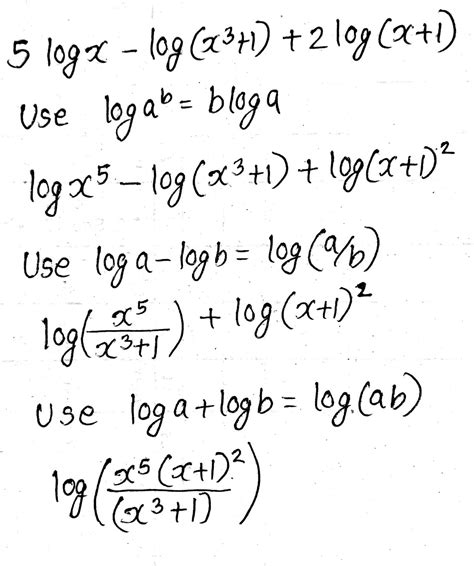 5 log x − log(x³+1) + 2 log(x+1)
Use log aᵇ = b log a
log x⁵ − log(x³+1) + log(x+1)²
Use log a − log b = log(a/b)
log(x⁵/(x³+1)) + log(x+1)²
Use log a + log b = log.(ab)
log(x⁵(x+1)²/(x³+1))